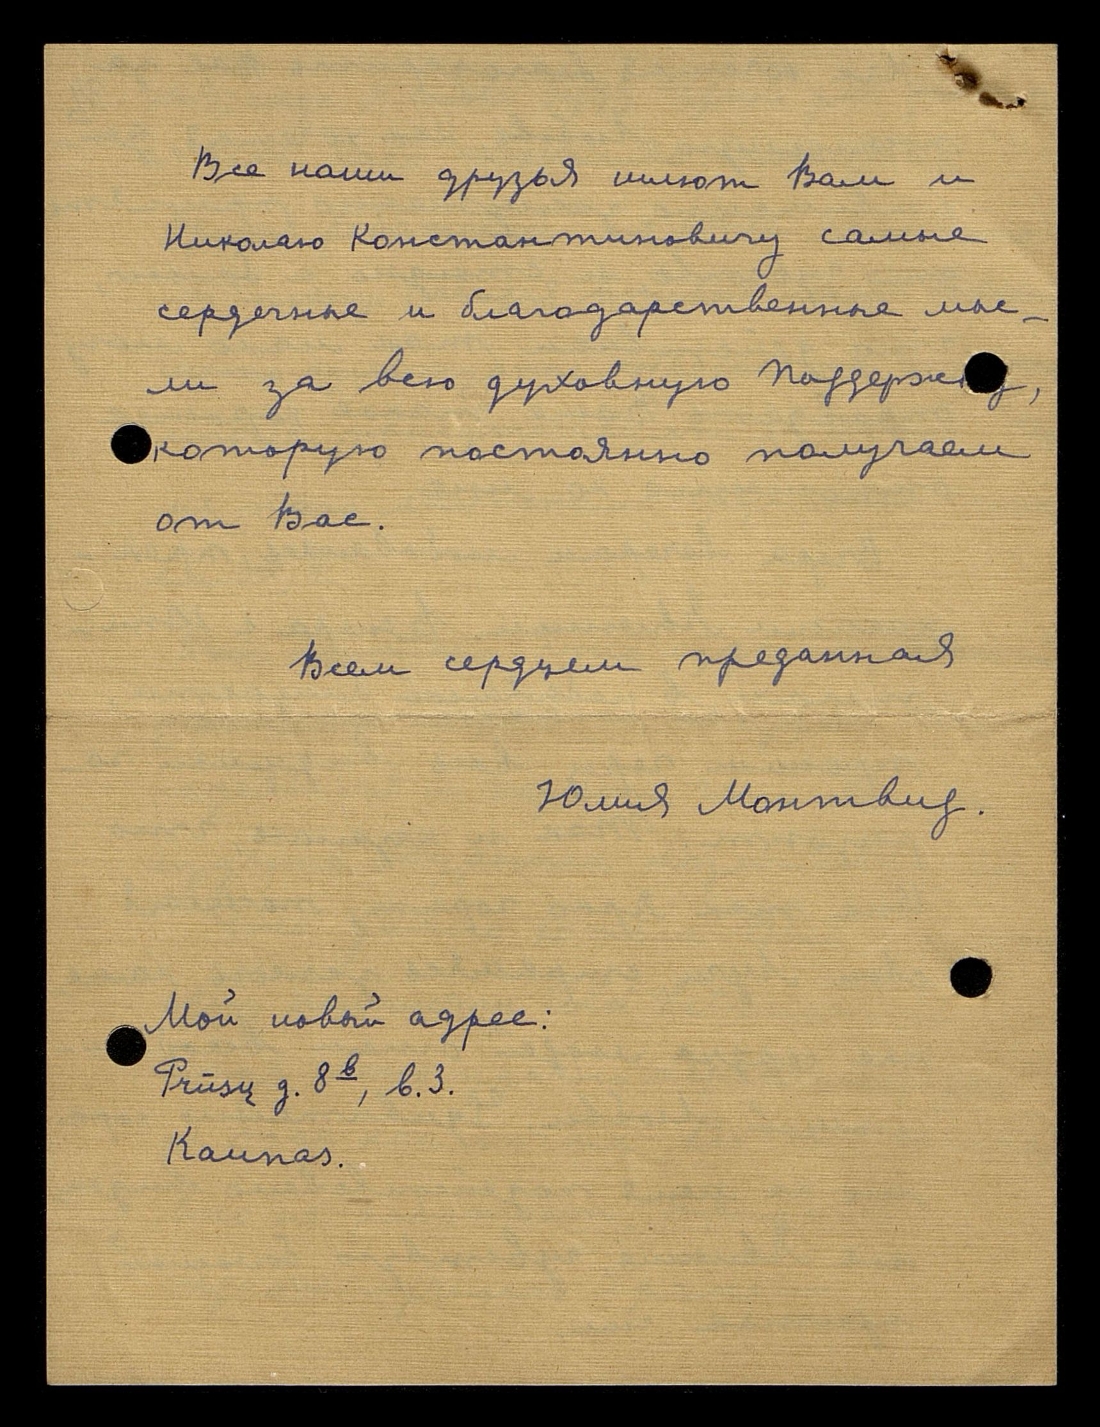 Все наши друзья шлют Вам и
Николаю Константиновичу самые
сердечные и благодарственные мыс-
ли за всю духовную поддержку,
которую постоянно получаем
от Вас.
Всем сердцем преданная
Юлия Монтвид.
Мой новый адрес:
Prūsų g. 8ᵇ, b. 3.
Kaunas.